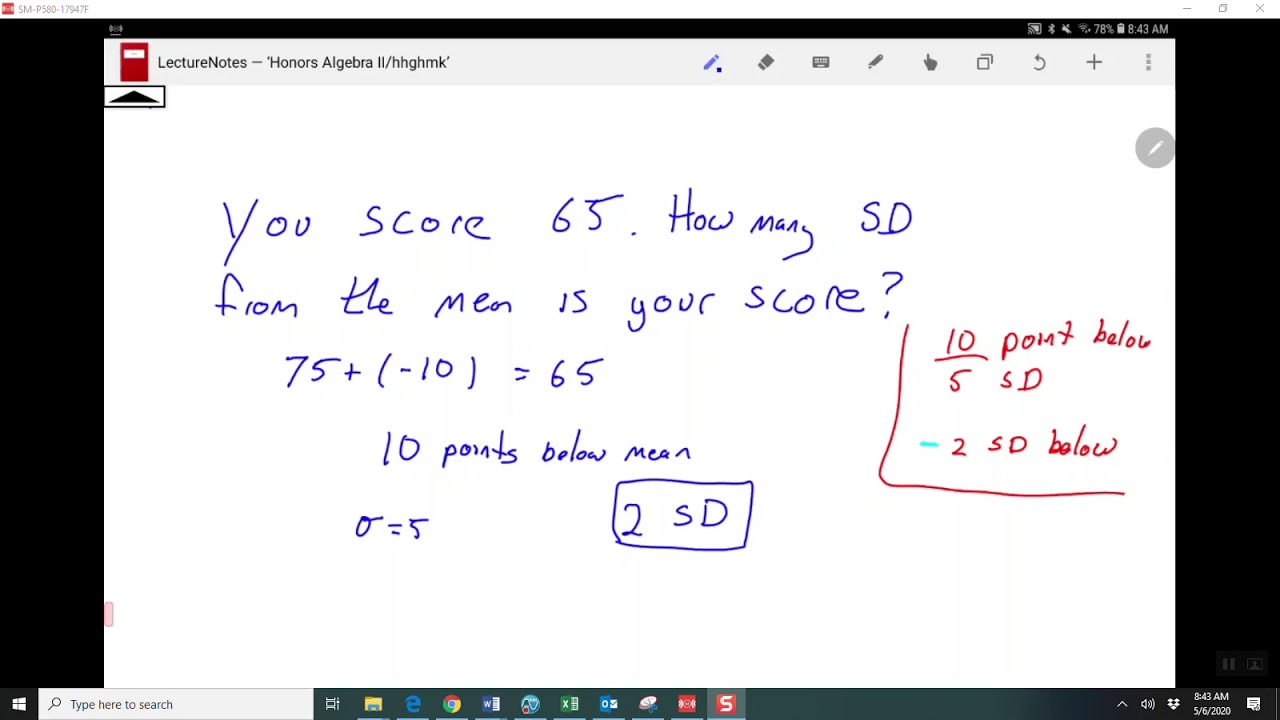 SM-P580-17947F
78% 8:43 AM
LectureNotes — 'Honors Algebra II/hhghmk'
You score 65. How many SD
from the mean is your score?
75+(-10) = 65
10 points below mean
σ=5
2 SD
10 point below
5 SD
- 2 SD below
Type here to search
8:43 AM
5/6/2020